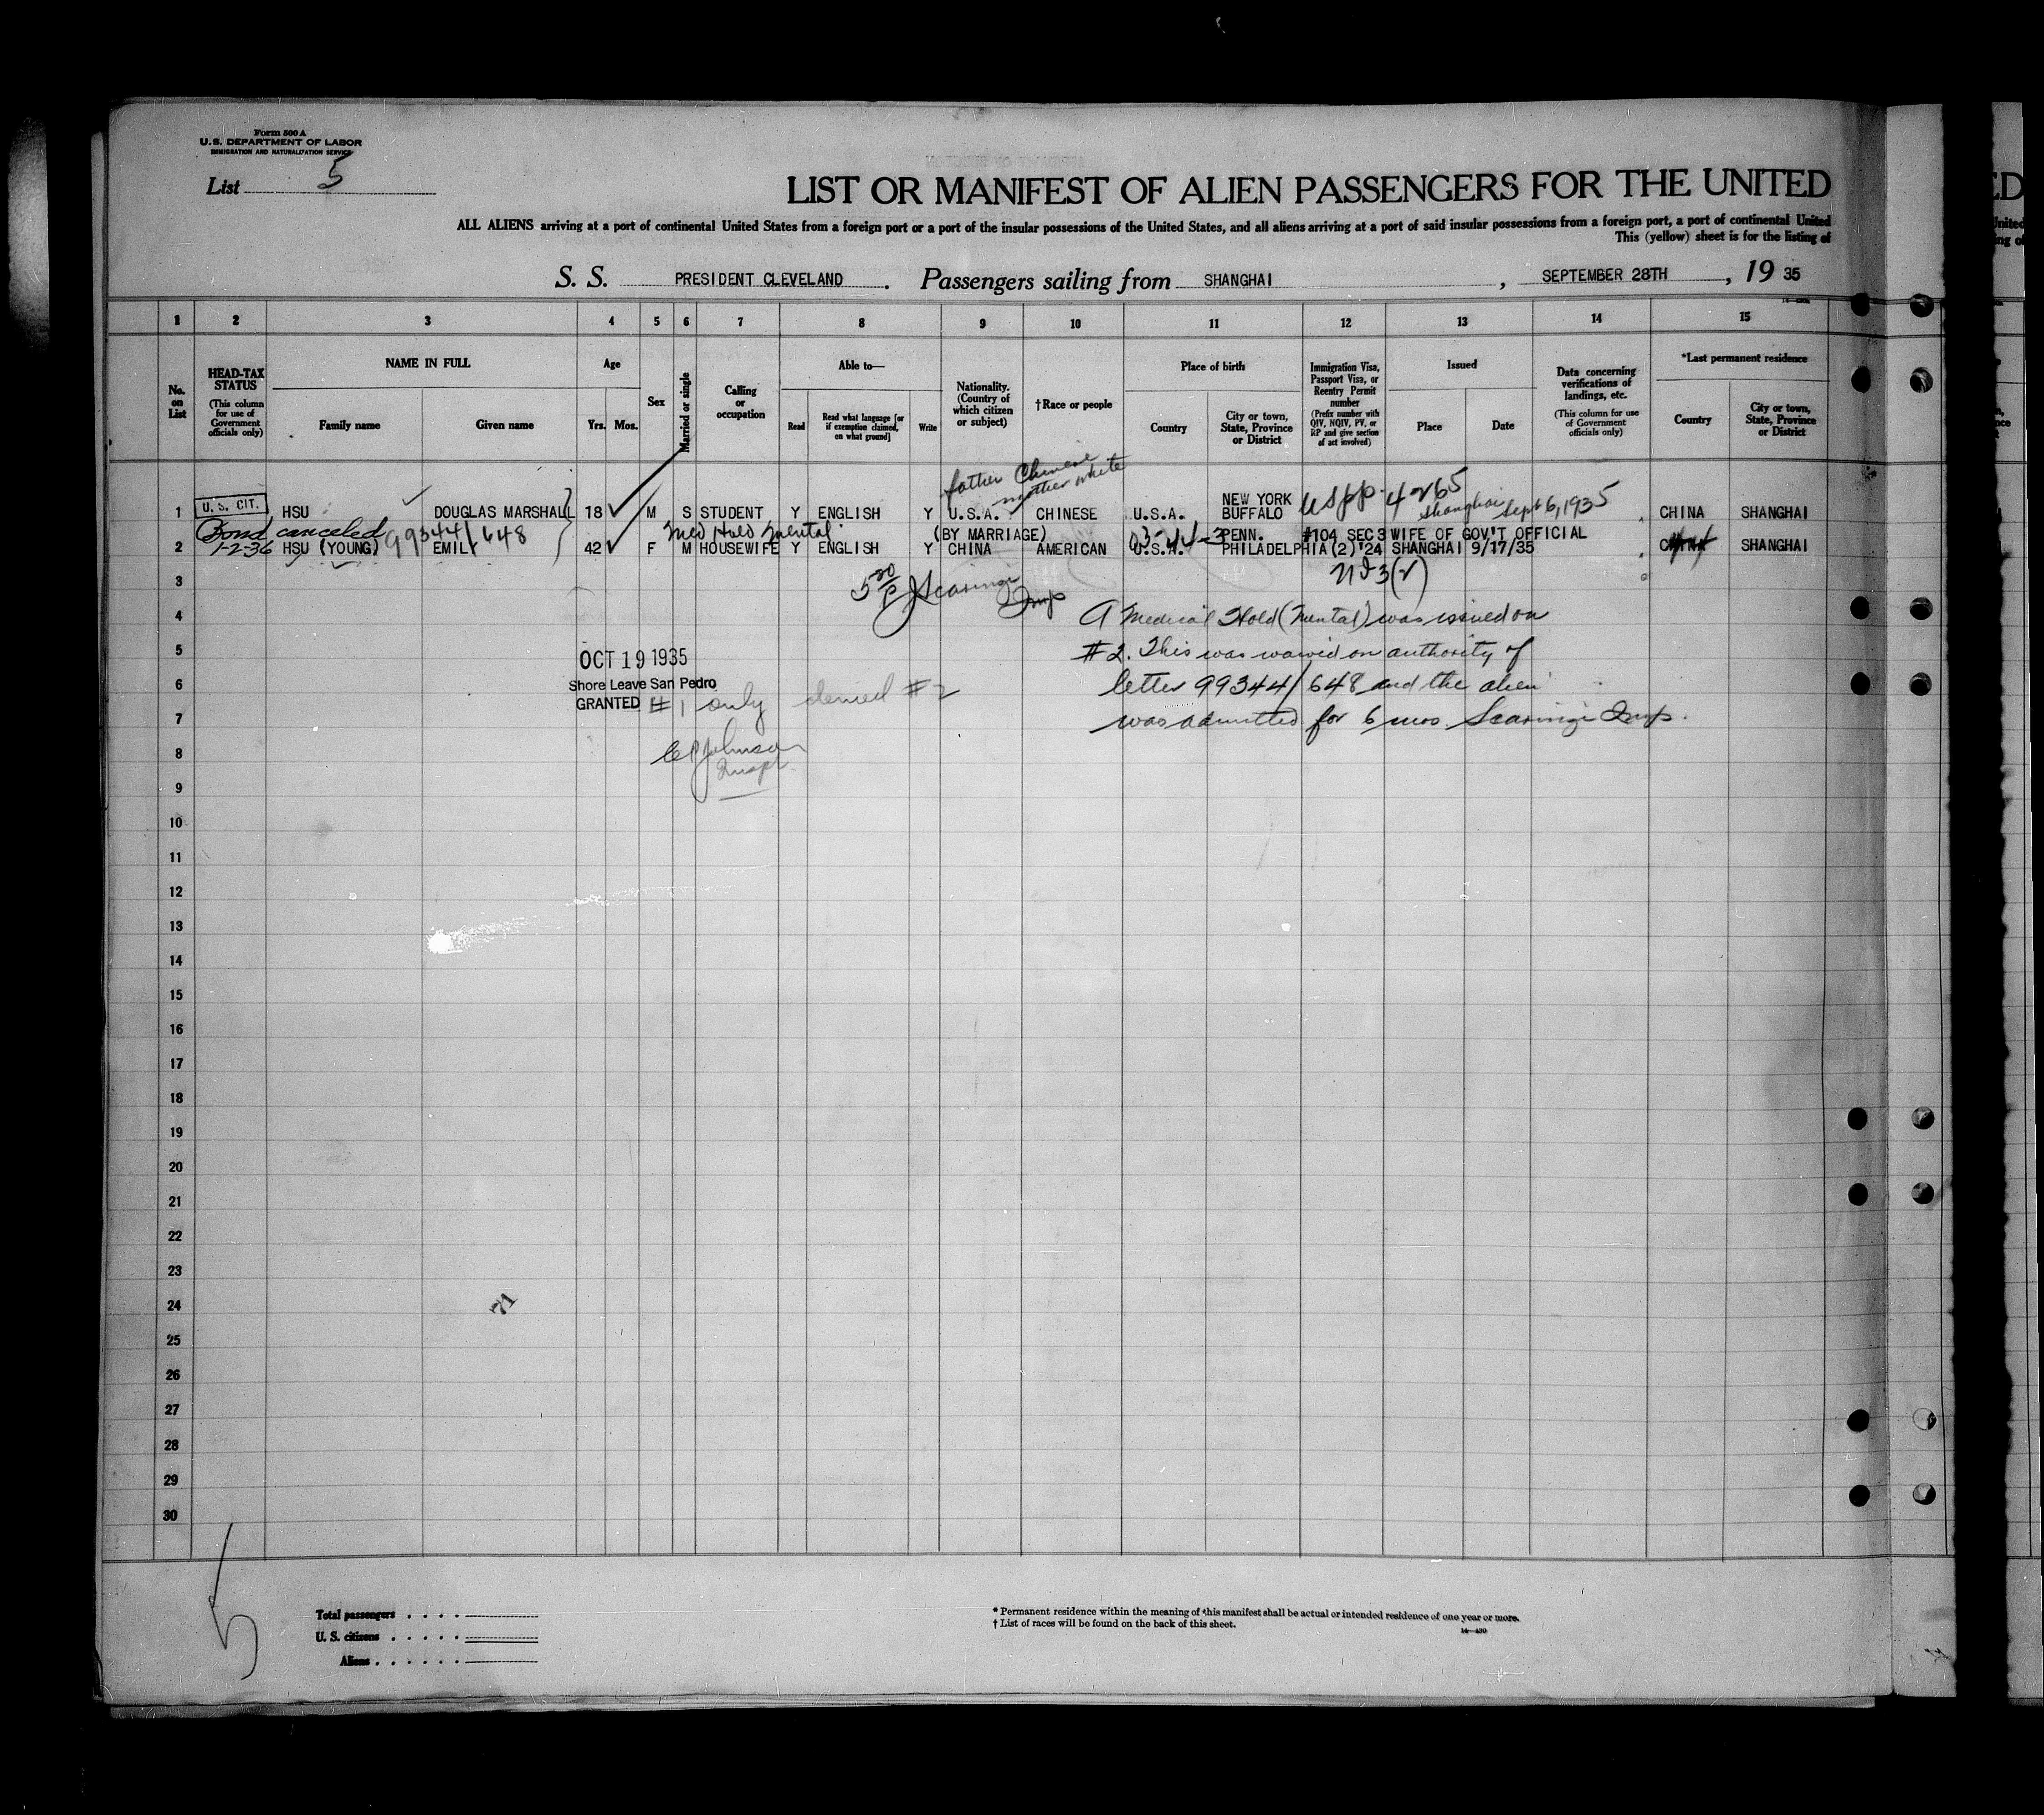 Form 500 A
U.S. DEPARTMENT OF LABOR
IMMIGRATION AND NATURALIZATION SERVICE
List 5
LIST OR MANIFEST OF ALIEN PASSENGERS FOR THE UNITED
ALL ALIENS arriving at a port of continental United States from a foreign port or a port of the insular possessions of the United States, and all aliens arriving at a port of said insular possessions from a foreign port, a port of continental United
This (yellow) sheet is for the listing of
S. S. PRESIDENT CLEVELAND. Passengers sailing from SHANGHAI, SEPTEMBER 28TH, 19 35
1 2 3 4 5 6 7 8 9 10 11 12 13 14 15
No. on List
HEAD-TAX STATUS (This column for use of Government officials only)
NAME IN FULL
Family name Given name
Age
Yrs. Mos.
Sex
Married or single
Calling or occupation
Able to—
Read
Read what language [or if exemption claimed, on what ground]
Write
Nationality. (Country of which citizen or subject)
†Race or people
Place of birth
Country
City or town, State, Province or District
Immigration Visa, Passport Visa, or Reentry Permit number (Prefix number with QIV, NQIV, PV, or RP and give section of act involved)
Issued
Place Date
Data concerning verifications of landings, etc. (This column for use of Government officials only)
*Last permanent residence
Country
City or town, State, Province or District
father Chinese
mother white
1 U. S. CIT. HSU DOUGLAS MARSHALL 18 M S STUDENT Y ENGLISH Y U.S.A. CHINESE U.S.A. NEW YORK BUFFALO uspp. 4265 Shanghai Sept 6, 1935 CHINA SHANGHAI
Bond canceled 99344/648 Med Hold mental (BY MARRIAGE) 03-44-3 PENN. #104 SEC 3 WIFE OF GOV'T OFFICIAL
2 1-2-36 HSU (YOUNG) EMILY 42 F M HOUSEWIFE Y ENGLISH Y CHINA AMERICAN U.S.A. PHILADELPHIA (2) '24 SHANGHAI 9/17/35 CHINA SHANGHAI
3 3(2)
4 A Medical Hold (Mental) was issued on
5 #2. This was waived on authority of
OCT 19 1935
6 letter 99344/648 and the alien
Shore Leave San Pedro
GRANTED #1 only denied #2
7 was admitted for 6 mos Scaringi Insp.
8 Johnson
Inspt.
9
10
11
12
13
14
15
16
17
18
19
20
21
22
23
24 71
25
26
27
28
29
30
5
Total passengers . . . .
U. S. citizens . . . . .
Aliens . . . . . .
* Permanent residence within the meaning of this manifest shall be actual or intended residence of one year or more.
† List of races will be found on the back of this sheet.